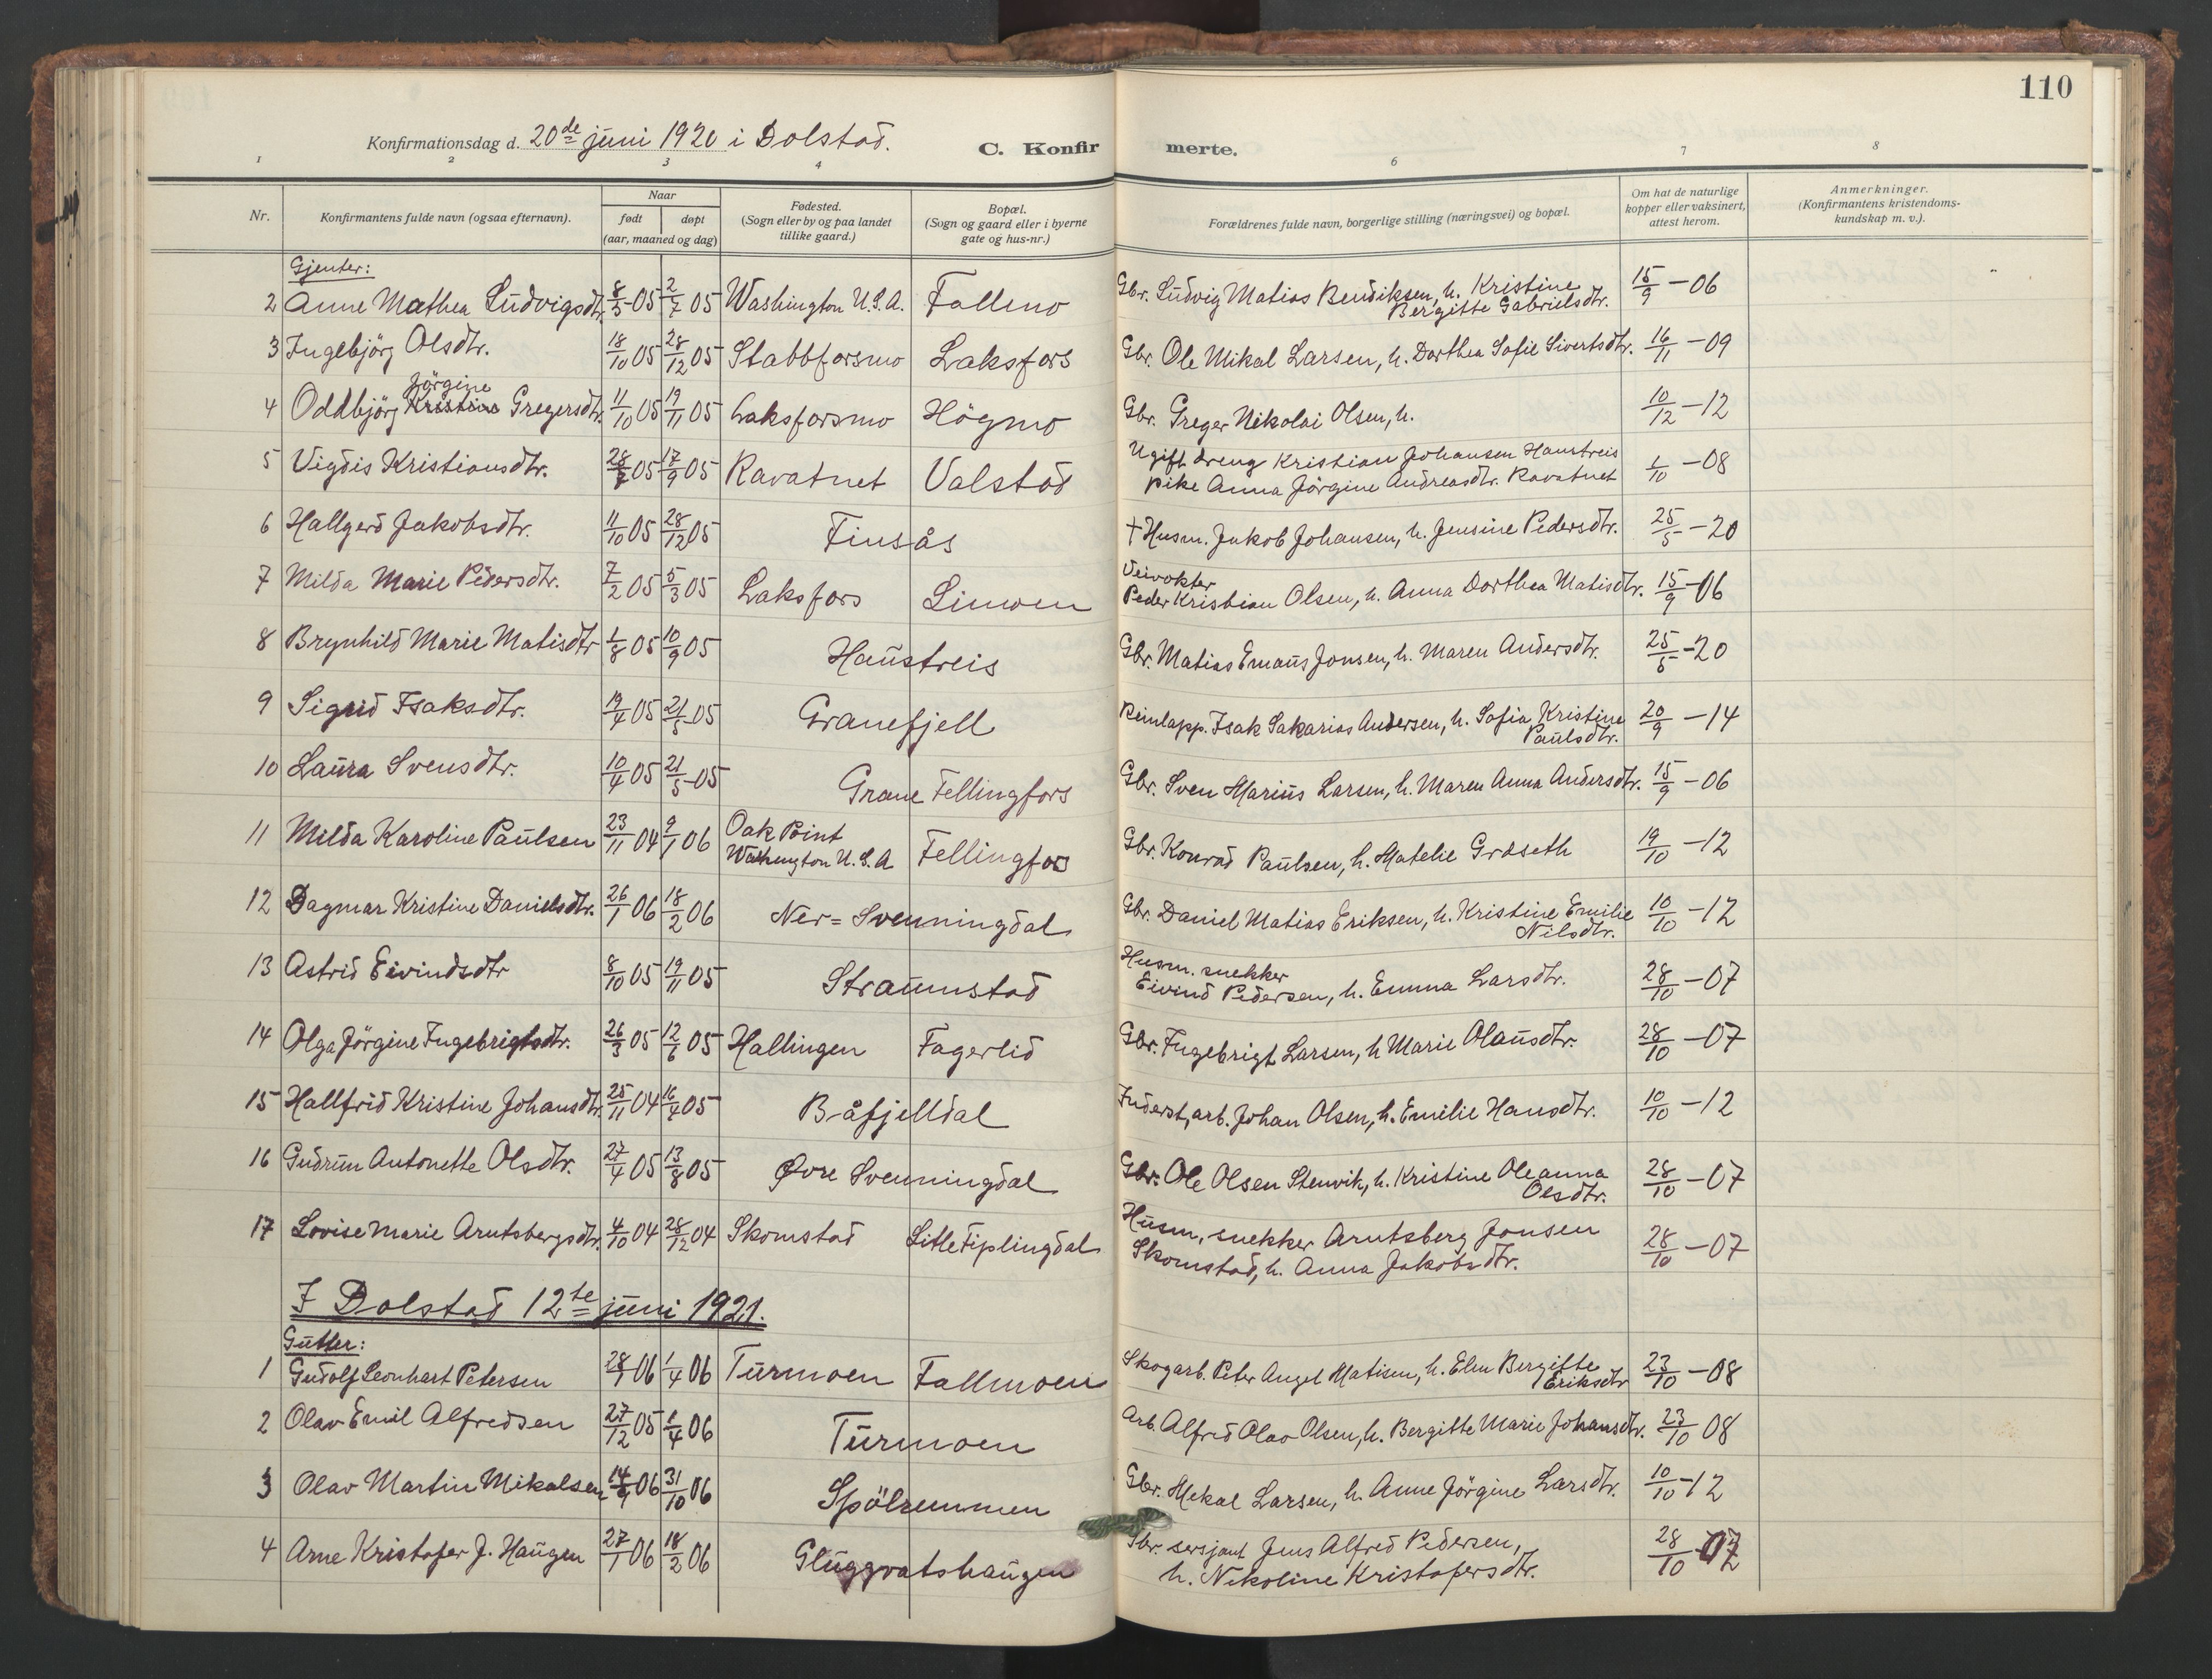 110
Konfirmationsdag d. 20de juni 1920 i Dolstad.
C. Konfirmerte.
1 2 3 4 6 7 8
Nr. Konfirmantens fulde navn (ogsaa efternavn). Naar født døpt (aar, maaned og dag) Fødested. (Sogn eller by og paa landet tillike gaard.) Bopæl. (Sogn og gaard eller i byerne gate og hus-nr.) Forældrenes fulde navn, borgerlige stilling (næringsvei) og bopæl. Om hat de naturlige kopper eller vaksinert, attest herom. Anmerkninger. (Konfirmantens kristendomskundskap m. v.).
Gjenter:
2 Anne Mathea Ludvigsdtr. 8/5-05 2/7 05 Washington U.S.A. Fallmo Gbr. Ludvig Matias Bendiksen, h. Kristine Bergitte Gabrielsdtr. 15/9-06
3 Ingebjörg Olsdtr. 18/10 05 28/12 05 Stabbforsmo Laksfors Gbr. Ole Mikal Larsen, h. Dorthea Sofie Sivertsdtr. 16/11-09
4 Oddbjörg Jörgine Kristine Gregersdtr. 11/10 05 19/11 05 Laksforsmo Högmo Gbr. Greger Nikolai Olsen, h. 10/12-12
5 Vigdis Kristiansdtr. 28/7 05 17/9 05 Ravatnet Valstad Ugift dreng Kristian Johansen Haustreis pike Anna Jörgine Andreasdtr. Ravatnet 1/10-08
6 Hallgerd Jakobsdtr. 11/10 05 28/12 05 Finsås † Husm. Jakob Johansen, h. Jensine Pedersdtr. 25/5-20
7 Milda Marie Pedersdtr. 7/2 05 5/3 05 Laksfors Limoen Veivokter Peder Kristian Olsen, h. Anna Dorthea Matisdtr. 15/9-06
8 Brynhild Marie Matisdtr 1/8 05 10/9 05 Haustreis Gbr. Matias Emaus Jonsen, h. Maren Andersdtr. 25/5-20
9 Sigrid Isaksdtr. 19/4 05 21/5-05 Granefjell Reinlapp. Isak Sakarias Andersen, h. Sofia Kristine Paulsdtr. 20/9-14
10 Laura Svensdtr. 10/4 05 21/5-05 Grane Fellingfors Gbr. Sven Marius Larsen, h. Maren Anna Andersdtr. 15/9-06
11 Milda Karoline Paulsen 23/11 04 9/1 06 Oak Point Washington U.S.A Fellingfors Gbr. Konrad Paulsen, h. Matelie Graseth 19/10-12
12 Dagmar Kristine Danielsdtr. 26/1 06 18/2 06 Ner=Svenningdal Gbr. Daniel Matias Eriksen, h. Kristine Emilie Nilsdtr. 10/10-12
13 Astrid Eivindsdtr 8/10 05 19/11 05 Straumstad Husm. snekker Eivind Pedersen, h. Emma Larsdtr. 28/10-07
14 Olga Jörgine Ingebrigtsdtr. 26/3 05 12/6 05 Hallingen Fagerlid Gbr. Ingebrigt Larsen, h Marie Olausdtr. 28/10-07
15 Hallfrid Kristine Johansdtr. 25/11 04 16/4 05 Båfjelldal Inderst, arb. Johan Olsen, h. Emilie Hansdtr. 10/10-12
16 Gudrun Antonette Olsdtr. 27/4 05 13/8 05 Øvre Svenningdal Gbr. Ole Olsen Stenvik, h. Kristine Oleanna Olsdtr. 28/10-07
17 Lovise Marie Arntsbergsdtr. 4/10 04 28/12 04 Skomstad Litle Fiplingdal Husm, snekker Arntsberg Jonsen Skomstad, h. Anna Jakobsdtr. 28/10-07
I Dolstad 12te juni 1921.
Gutter:
1 Gudolf Leonhart Petersen 28/1 06 1/4 06 Turmoen Fallmoen Skogarb. Peter Angel Matisen, h. Elen Bergitte Eriksdtr 23/10-08
2 Olav Emil Alfredsen 27/12 05 1/4 06 Turmoen Arb. Alfred Olav Olsen, h. Bergitte Marie Johansdtr. 23/10 08
3 Olav Martin Mikalsen 14/9 06 31/10 06 Spölremmen Gbr. Mekal Larsen, h. Anne Jörgine Larsdtr. 10/10-12
4 Arne Kristofer J. Haugen 27/1 06 18/2 06 Gluggvatshaugen Gbr. sersjant Jens Alfred Pedersen, h. Nikoline Kristofersdtr. 28/10-07